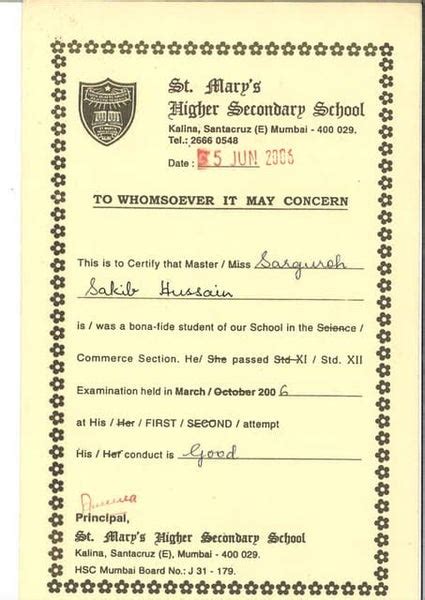 St. Mary's
Higher Secondary School
Kalina, Santacruz (E) Mumbai - 400 029.
Tel.: 2666 0548
Date : 5 JUN 2006
TO WHOMSOEVER IT MAY CONCERN
This is to Certify that Master / Miss Sarguroh
Sakib Hussain
is / was a bona-fide student of our School in the Science /
Commerce Section. He/ She passed Std XI / Std. XII
Examination held in March / October 2006
at His / Her / FIRST / SECOND / attempt
His / Her conduct is Good
Principal,
St. Mary's Higher Secondary School
Kalina, Santacruz (E), Mumbai - 400 029.
HSC Mumbai Board No.: J 31 - 179.